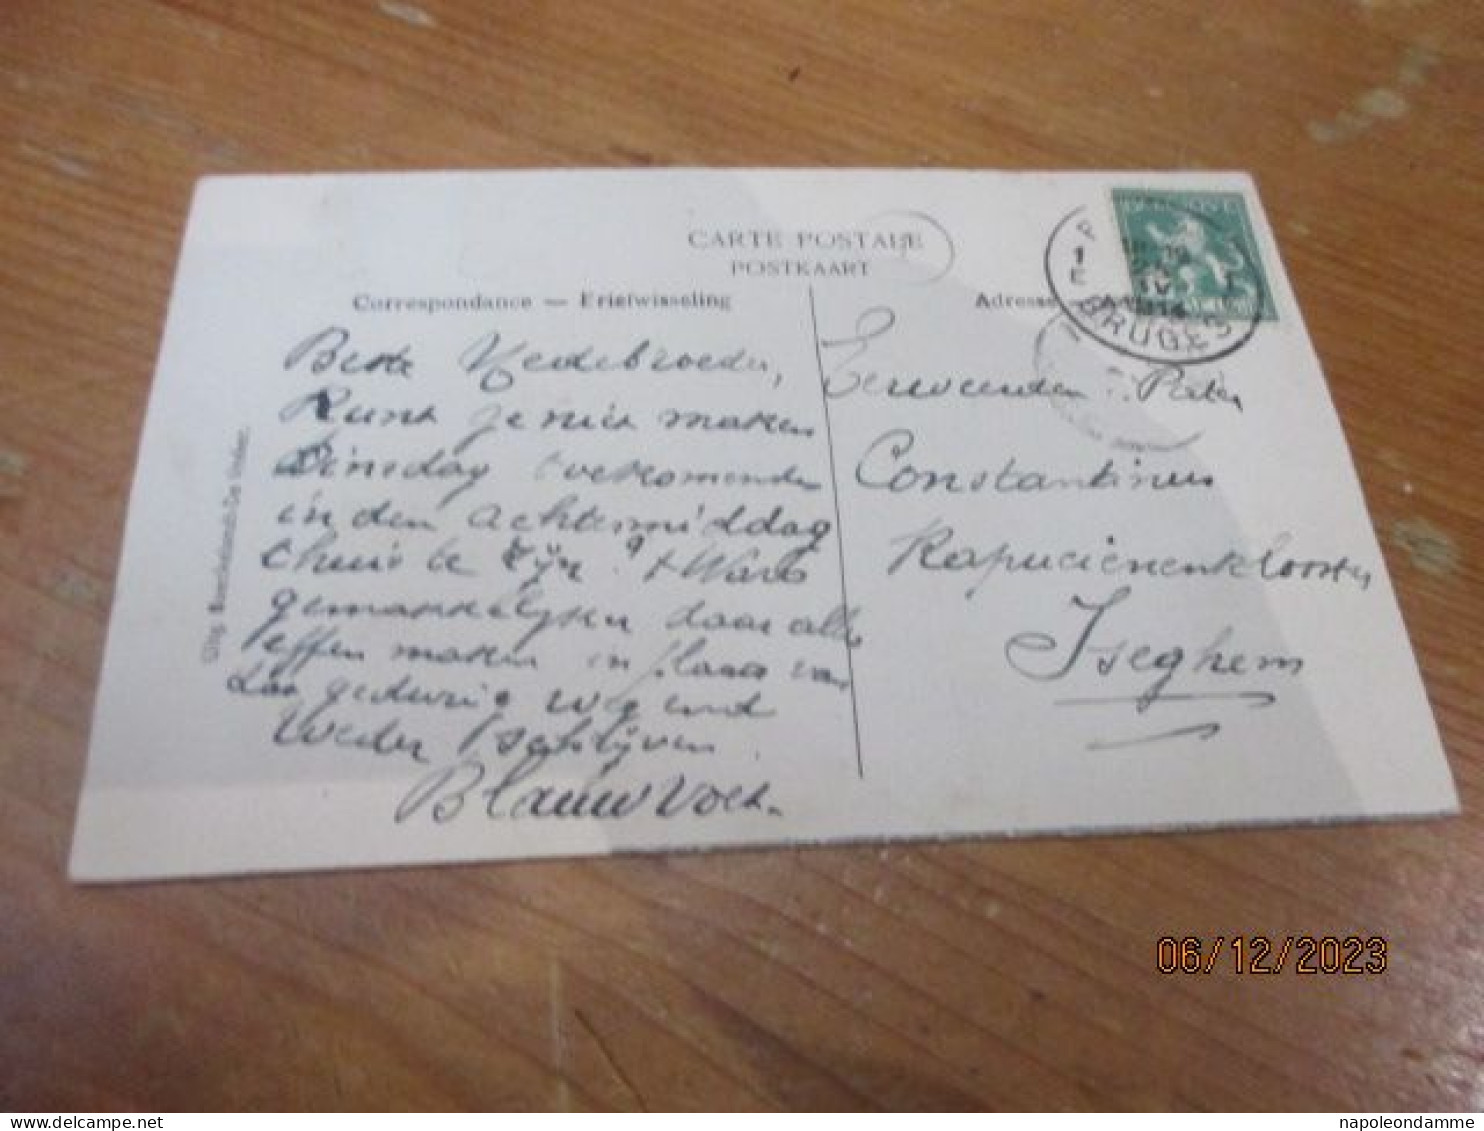 CARTE POSTALE
POSTKAART
Correspondance — Briefwisseling
Adresse
BRUGES
Beste Medebroeder,
Kunt je niet maken
Dinsdag toekomende
in den achtermiddag
thuis te zijn? 't Ware
gemakkelijker daar alles
effen maken in plaats van
gedurig weg end
weder schrijven.
Blauwvoet.
Eerweerden Pater
Constantinus
Kapucienenklooster
Iseghem
Uitg.
06/12/2023
napoleondamme